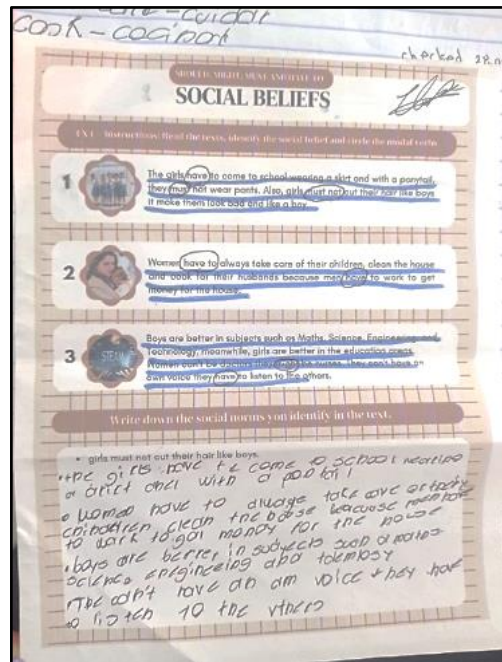 cook - cocinar
checked
SHOULD, MIGHT, MUST AND HAVE TO
SOCIAL BELIEFS
EX 1 - Instructions: Read the texts, identify the social belief and circle the modal verbs
1
The girls have to come to school wearing a skirt and with a ponytail,
they must not wear pants. Also, girls must not cut their hair like boys
it make them look bad and like a boy.
2
Women have to always take care of their children, clean the house
and cook for their husbands because men have to work to get
money for the house.
3
STEAM
Boys are better in subjects such as Maths, Science, Engineering and
Technology, meanwhile, girls are better in the education areas.
Women can't be doctors they nurses. They can't have an
own voice they have to listen to the others.
Write down the social norms you identify in the text.
• girls must not cut their hair like boys.
• the girls have to come to school wearing
a and with a
• women have to take care of
clean the house because men have
to work to money for the house
• boys are better in subjects such
science and
have an voice they have
to listen to the